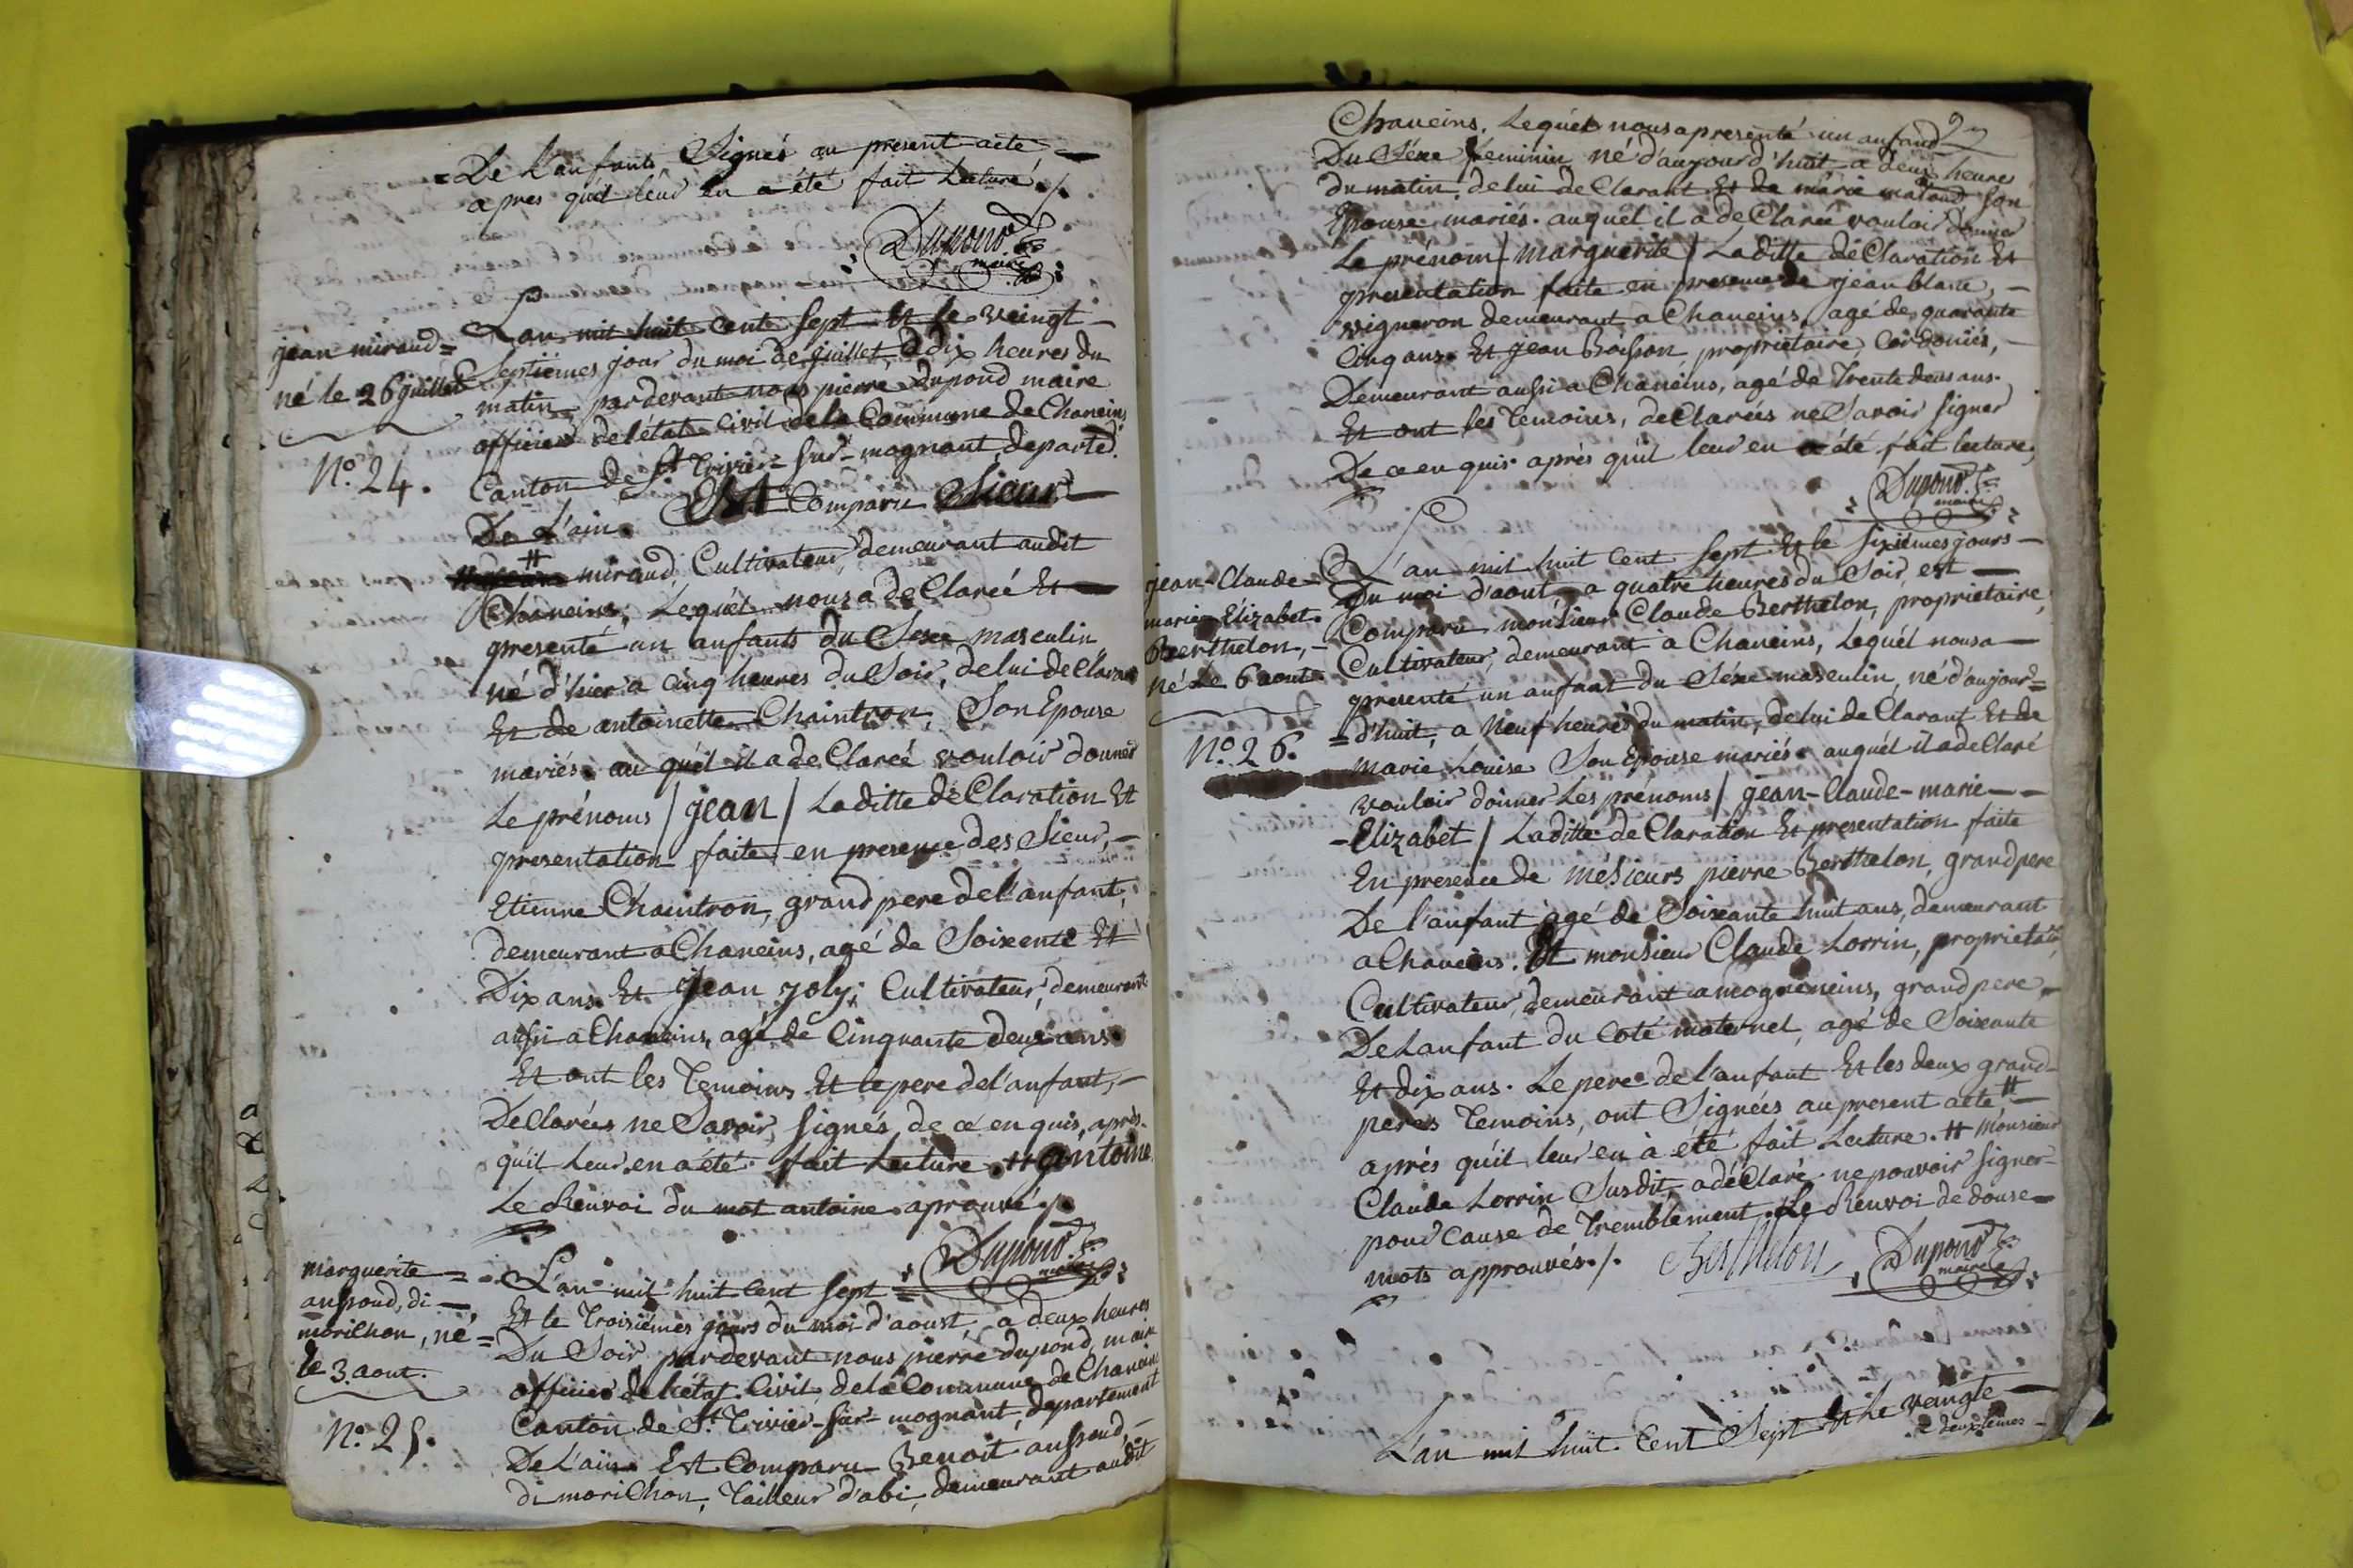 = De L'anfants Signés au present acte =
apres qu'il leur en a été fait Lecture ./.
Dupond
maire
jean miraud =
né le 26 juillet
N.º 24.
L'an mil huit cents sept Et le veingt
Septiemes jour du moi de juillet, a dix heures du
matin, pardevant nous pierre Dupond maire
officier de l'etat Civil de la Commune de Chaneins
Canton de S.t Trivier Sur-mognant, departed.
De L'ain. Est Comparu Sieur
# miraud, Cultivateur, demeurant audit
Chaneins, Lequél nous a deClareé Et
presenté un anfants du Sexe masculin
né d'hier a Cinq heures du Soir, de lui de Clarant
Et de antoinette Chaintron, Son Epouse
mariés. au quél il a de Clareé vouloir donner
Le prénoms / jean / Laditte deClaration Et
presentation faite en presence des Sieur, -
Etienne Chaintron, grand pere de l'anfant,
demeurant a Chaneins, agé de Soixente Et
Dix ans. Et jean joly, Cultivateur, demeurant
aussi a Chaneins, agé de Cinquante deux ans.
Et ont les Temoins Et le pere de l'anfant, -
DeClarées ne Savoir signés de ce en quis, après
qu'il leur en a été fait Lecture. # antoine
Le Renvoi du mot antoine aprouvé ./.
Dupond
maire
marguerite =
aupoud, di -
moriChon, né =
le 3. aout.
N.º 25.
L'an mil huit Cent sept =
Et le Troisiémes jours du moi d'aoust, a deux heures
Du Soir pardevant nous pierre dupond, maire
officier de l'état Civil de la Commune de Chaneins
Canton de S.t Trivier-sur-mognant, departement
De L'ain. Est Comparu Benoit aupoud, -
di moriChon, Tailleur d'abi, demeurant audit
Chaneins. Lequél nous a presenté un anfand
Du Séxe feminin né d'aujourd'huit a deux heures
du matin, de lui de Clarant Et de marie matoud son
Epouse mariés. auquél il a de Clareé vouloir donner
Le prénom / marguerite / Laditte deClaration Et
presentation faite en presence de jean blanc, -
vigneron demeurant a Chaneins, agé de quarante
Cinq ans. Et jean Boisson propriétaire, Cordoniés, -
Demeurant aussi a Chaneins, agé de Trente deus ans.
Et ont les Temoins, deClarées ne Savoir signer
De ce en quis après qu'il leur en a été fait lecture,
Dupond
maire
jean-Claude-
marie-Elizabet.
Berthelon, -
né Le 6 aout
N.º 26.
L'an mil huit Cent Sept Et le sixiémes jours -
Du moi d'aout, a quatre heures du Soir, est
Comparu monsieur Claude Berthelon, propriétaire,
Cultivateur, demeurant à Chaneins, Lequél nous a
presenté un anfant du Séxe masculin, né d'aujour=
=d'huit, a neuf heures du matin, de lui de Clarant Et de
marie Louise Son Epouse mariés. auquél il a deClaré
vouloir donner Les prénoms / jean-Claude-marie-
-Elizabet / Laditte de Claration Et presentation faite
En presence de mésieurs pierre Berthelon, grand pere
De l'anfant agé de Soixante huit ans, demeurant
a Chaneins. Et monsieur Claude Lorrin, propriétaire,
Cultivateur, demeurant a mogneneins, grand pere
De L'anfant du Coté maternel, agé de Soixante
Et dix ans. Le pere de l'anfant Et les deux grand-
peres Temoins, ont Signées au present acte #
aprés qu'il leur en à été fait Lecture. # Monsieur
Claude Lorrin Susdit, a déClaré ne pouvoir signer
pour Cause de Tremblement. Le Renvoi de douse =
mots approuvés ./. Berthelon Dupond
maire
L'an mil huit Cent Sept Et le veingte
deuxiemes -